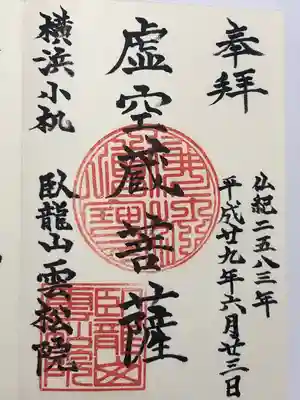 奉拝
仏紀二五八三年
平成廿九年六月廿三日
虚空蔵菩薩
横浜小机
臥龍山雲松院